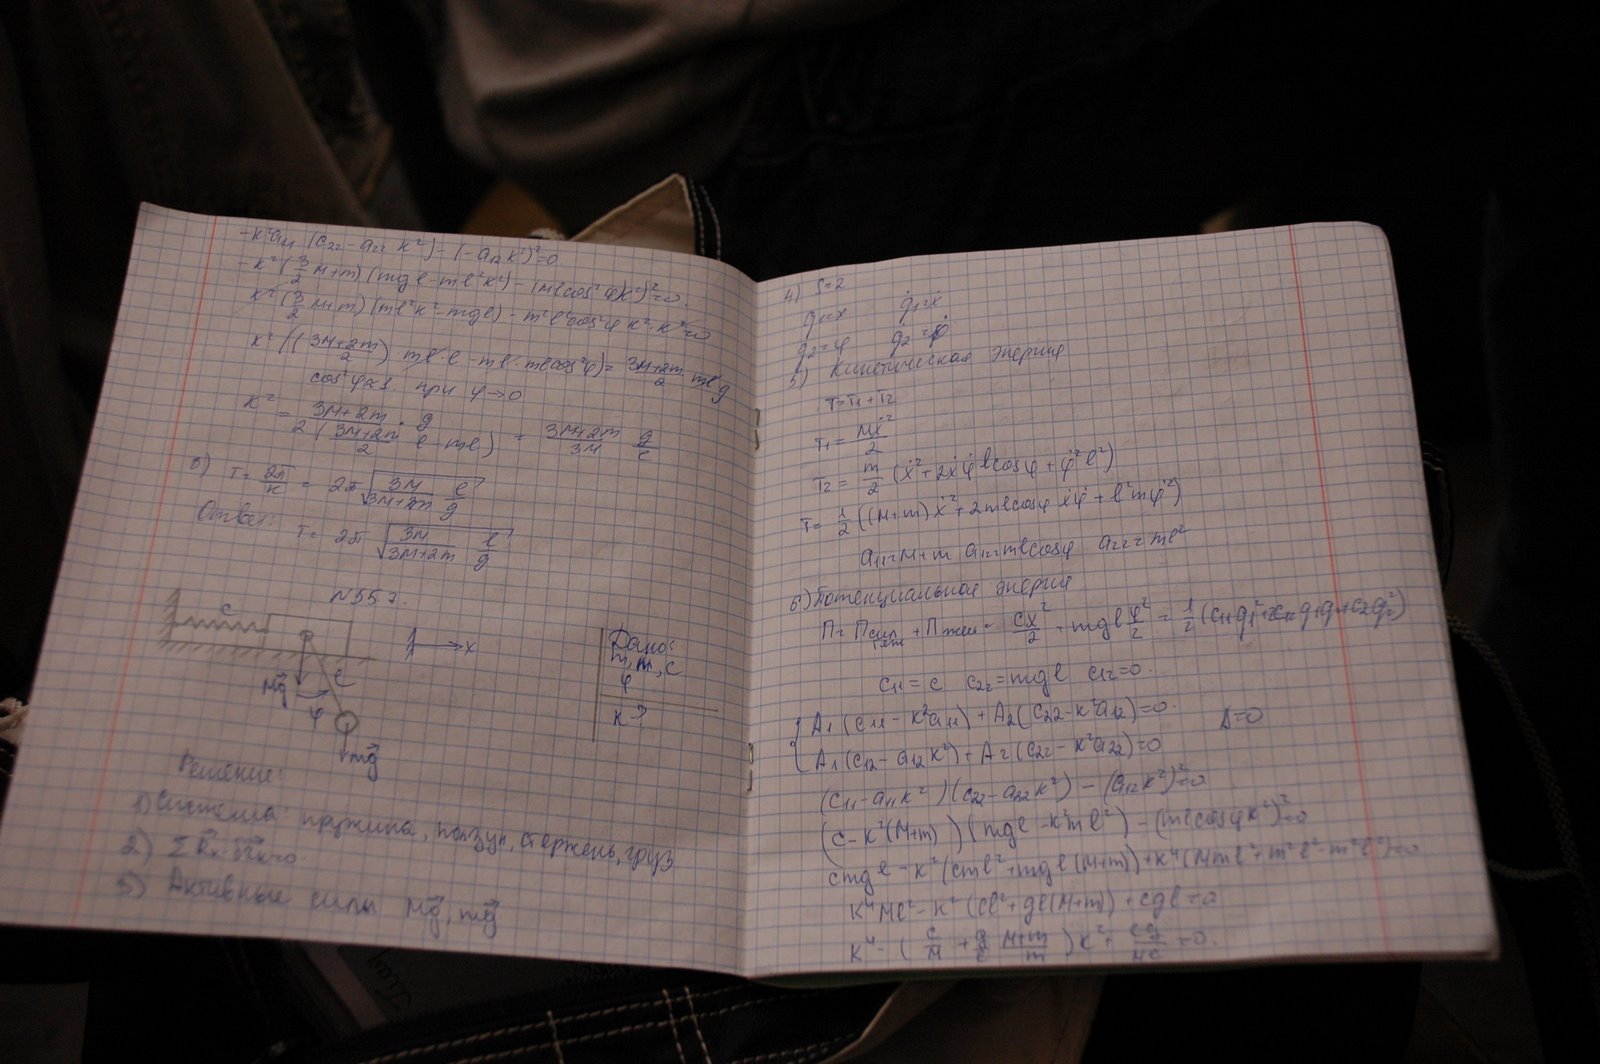 -k²a₁₁ (c₂₂-a₂₂ k²) - (-a₁₂ k²)²=0.
-k² (3/2 M+m) (mgl - ml²k²) - (mlcos²φk²)²=0.
k² (3/2 M+m) (ml²k² - mgl) - m²l²cos²φ k²·k²=0
k² ((3M+2m)/2) ml·l - ml·mlcos²φ) = (3M+2m)/2 mlg
cos²φ≈1 при φ→0
k² = (3M+2m · g)/(2((3M+2m)/2 l - ml)) = (3M+2m)/3M g/l
8) T = 2π/k = 2π √(3M/(3M+2m) l/g)
Ответ:
T = 2π √(3M/(3M+2m) l/g)
c
x
l
Mg
φ
mg
Дано:
φ
k-?
Решение:
1) Система: пружина, ползун, стержень, груз
3) Активные силы Mg, mg
4) S=2
q₁=x q̇₁=ẋ
q₂=φ q̇₂=φ̇
5) Кинетическая энергия
T=T₁+T₂
T₁ = Mẋ²/2
T₂ = m/2 (ẋ²+2ẋφ̇lcosφ+φ̇²l²)
T = 1/2 ((M+m)ẋ²+2mlcosφ ẋφ̇ + l²mφ̇²)
a₁₁=M+m a₁₂=mlcosφ a₂₂=ml²
6) Потенциальная энергия
c₁₁ = c c₂₂=mgl c₁₂=0.
A₁ (c₁₁ - k²a₁₁) + A₂ (c₂₂ - k²a₁₂)=0. Δ=0
A₁ (c₁₂ - a₁₂k²) + A₂ (c₂₂ - k²a₂₂)=0
(c₁₁ - a₁₁k²) (c₂₂ - a₂₂k²) - (a₁₂k²)²=0
(c - k²(M+m)) (mgl - k²ml²) - (mlcosφk²)²=0
cmgl - k²(cml²+mgl(M+m)) + k⁴(Mml²+m²l²-m²l²)=0
k⁴Ml² - k² (cl²+gl(M+m)) + cgl=0